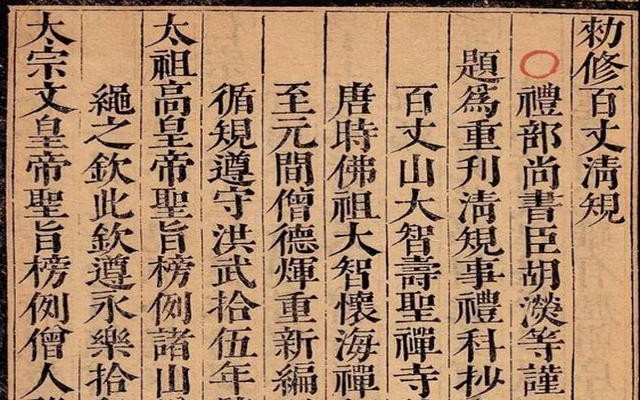 勑修百丈清規
禮部尚書臣胡濙等謹
題爲重刊清規事禮科抄
百丈山大智壽聖禪寺
唐時佛祖大智懷海禪
至元間僧德煇重新編
循規遵守洪武拾伍年
太祖高皇帝聖旨榜例諸山
繩之欽此欽遵永樂拾
太宗文皇帝聖旨榜例僧人